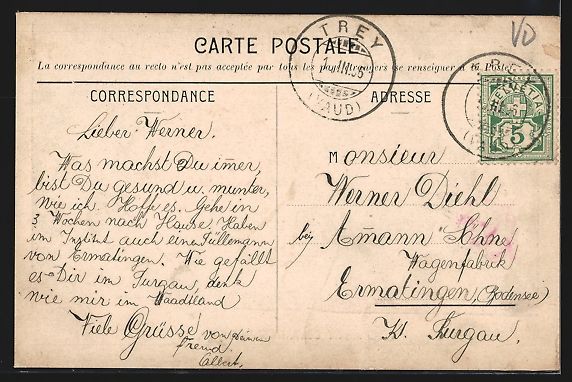 VD
CARTE POSTALE
La correspondance au recto n'est pas acceptée par tous les pays étrangers (se renseigner à la Poste)
TREY
1. III. 06
(VAUD)
TREY
HELVETIA
5
CORRESPONDANCE
ADRESSE
Lieber Werner.
Was machst Du immer,
bist Du gesund u. munter,
wie ich. Hoffe es. Gehe in
3 Wochen nach Hause. Haben
im Institut auch einen Füllengnn
von Ermatingen. Wie gefällt
es Dir im Turgau, denk
wie mir im Waadtland
Viele Grüsse von deinem
Freund.
Albert.
Monsieur
Werner Diehl
bey Amann Söhne
Wagenfabrik
Ermatingen (Bodensee)
Kt. Turgau.